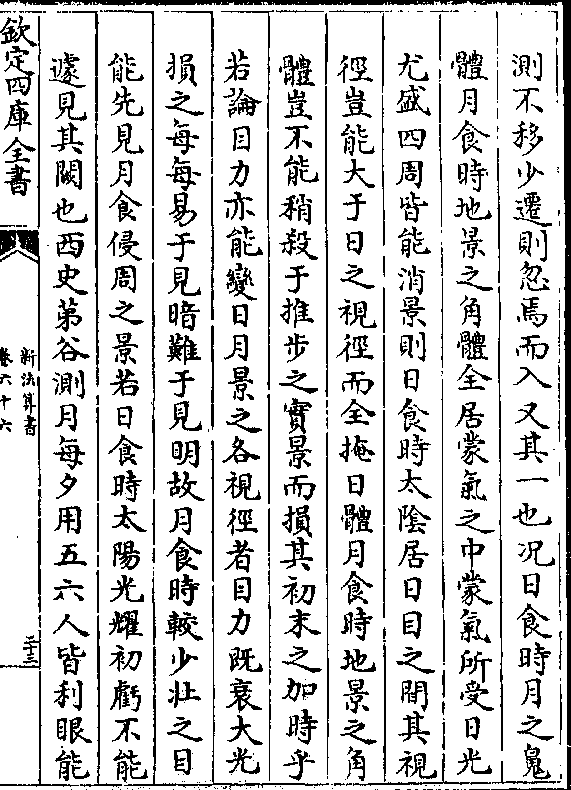 測不移少遷則忽焉而入又其一也况日食時月之䰟
體月食時地景之角體全居蒙氣之中蒙氣所受日光
尤盛四周皆能消景則日食時太陰居日目之間其視
徑豈能大于日之視徑而全掩日體月食時地景之角
體豈不能稍殺于推步之實景而損其初末之加時乎
若論目力亦能變日月景之各視徑者目力既衰大光
損之每每易于見暗難于見明故月食時較少壯之目
能先見月食侵周之景若日食時太陽光耀初虧不能
遽見其闕也西史苐谷測月每夕用五六人皆利眼能
欽定四庫全書
新法算書
卷六十六
二十三